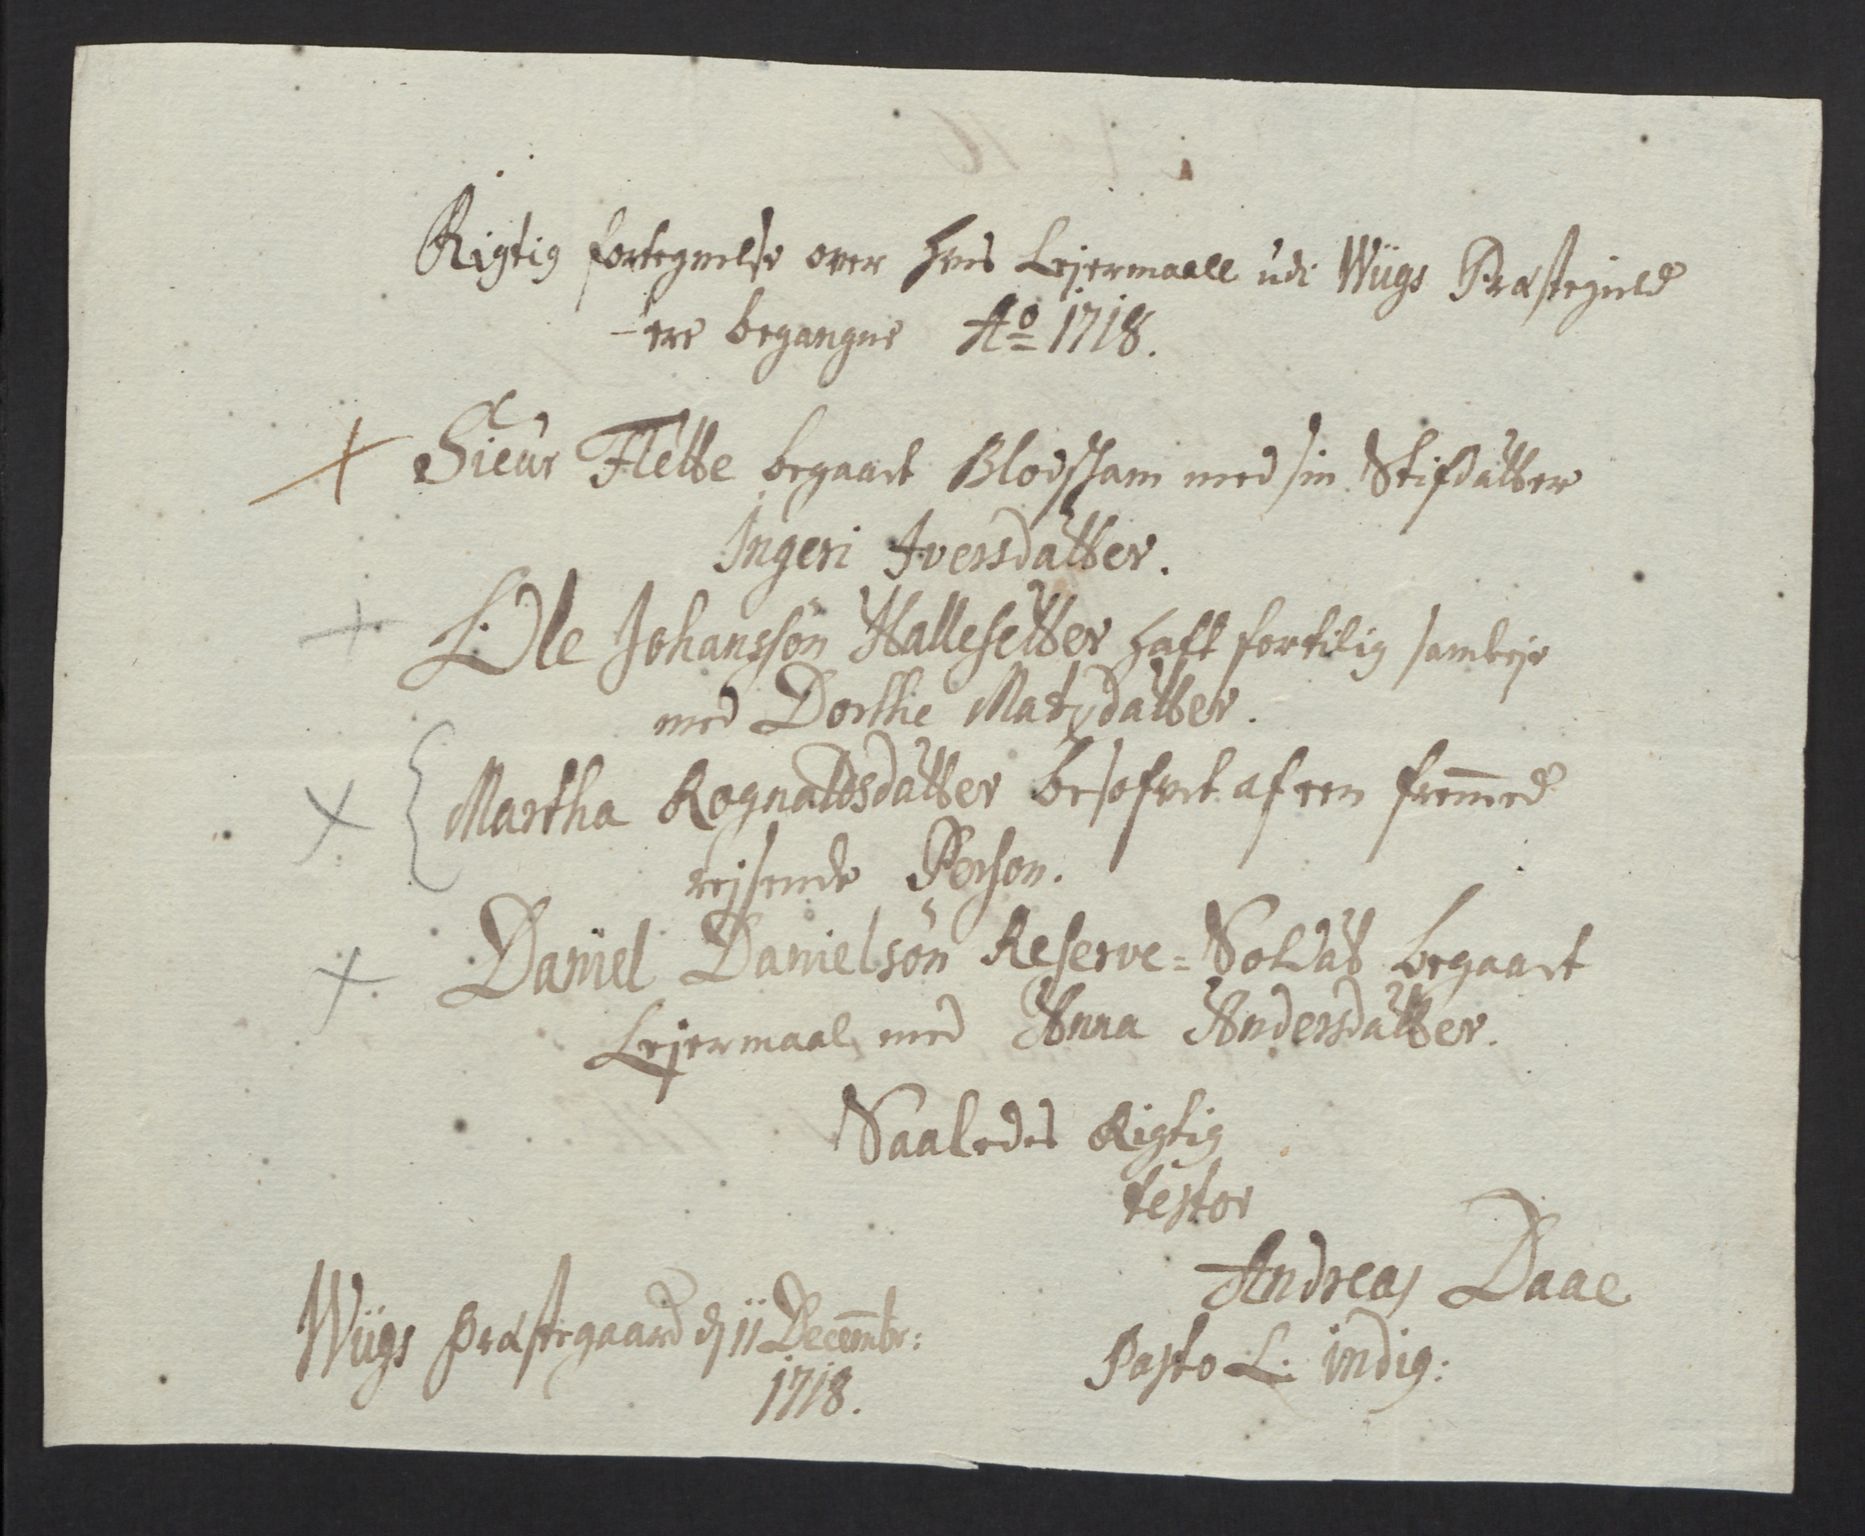 Rigtig fortegnelse over hvis Lejermaall udi Wügs Præstegield
ere begangne Ao 1718.
Sieur Flette begaaet Blodskam med sin Stifdatter
Ingeri Iversdatter.
Ole Johanssön Hallesetter haft fortilig samleje
med Dorthe Matzdatter.
Martha Rognaldsdatter besofvet af een fremmed
rejsende Person.
Daniel Danielsön Reserve=Soldat begaaet
Lejermaal med Anna Andersdatter.
Saaledes Rigtig
testor
Andreas Daae
Wügs præstegaard d 11 Decembr:
Pasto L. indig:
1718.